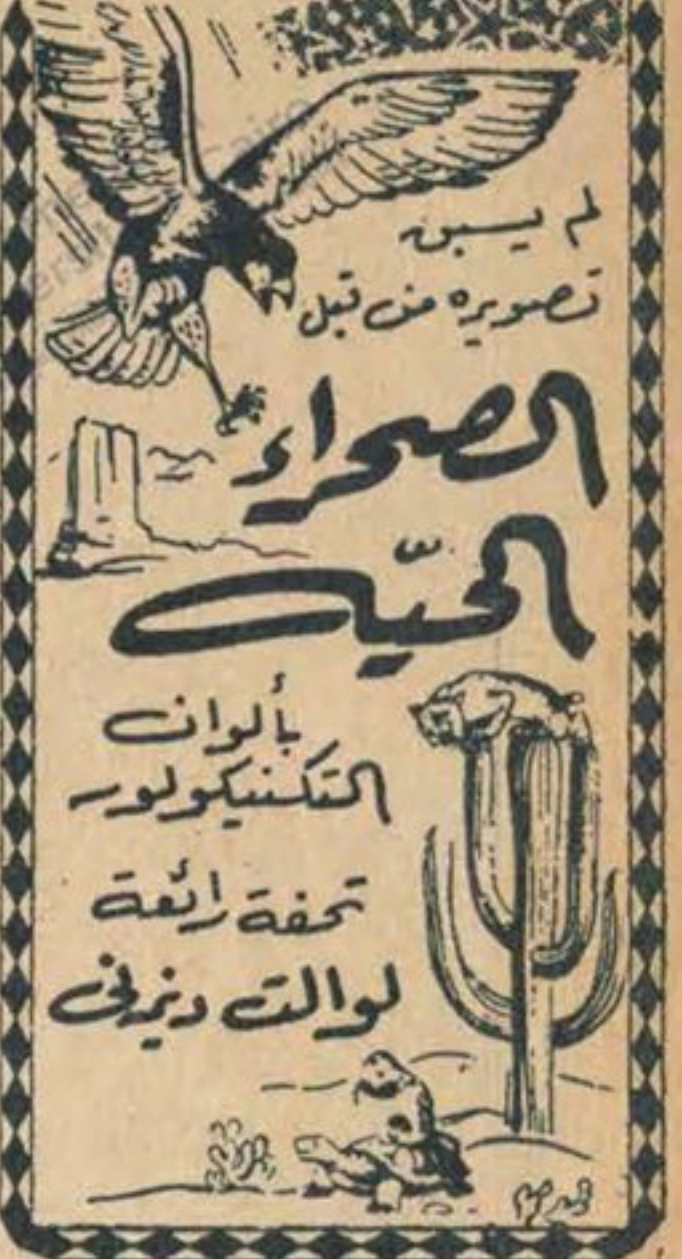 لم يسبق
تصويره من قبل
الصحراء
الحيّه
بألوان
التكنيكولور
تحفة رائعة
لوالت ديزنى